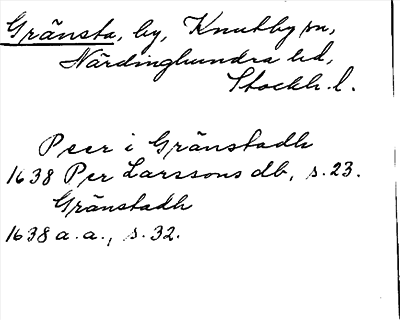 Gränsta, by, Knutby sn,
Närdinghundra hd,
Stockh. l.
Peer i Gränstadh
1638 Per Larssons db, s. 23.
Gränstadh
1638 a. a., s. 32.